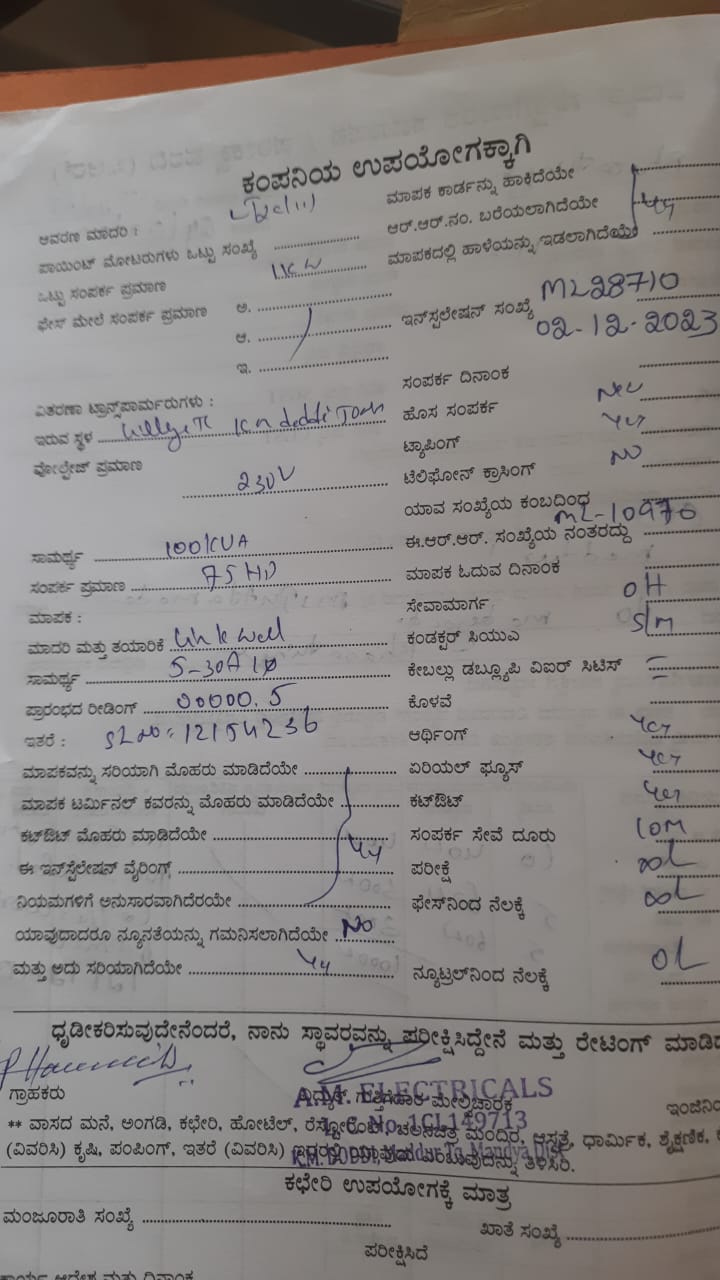 ಕಂಪನಿಯ ಉಪಯೋಗಕ್ಕಾಗಿ
ಆವರಣ ಮಾದರಿ :
ಪಾಯಿಂಟ್ ಮೋಟರುಗಳು ಒಟ್ಟು ಸಂಖ್ಯೆ
ಒಟ್ಟು ಸಂಪರ್ಕ ಪ್ರಮಾಣ 1KW
ಫೇಸ್ ಮೇಲೆ ಸಂಪರ್ಕ ಪ್ರಮಾಣ ಅ.
ಆ.
ಇ.
ವಿತರಣಾ ಟ್ರಾನ್ಸ್‌ಪಾರ್ಮರುಗಳು :
ಇರುವ ಸ್ಥಳ
ವೋಲ್ಟೇಜ್ ಪ್ರಮಾಣ 230V
ಸಾಮರ್ಥ್ಯ 100KVA
ಸಂಪರ್ಕ ಪ್ರಮಾಣ 75 HP
ಮಾಪಕ :
ಮಾದರಿ ಮತ್ತು ತಯಾರಿಕೆ Linkwell
ಸಾಮರ್ಥ್ಯ 5-30A 1φ
ಪ್ರಾರಂಭದ ರೀಡಿಂಗ್ 00000.5
ಇತರೆ : SL no: 12154236
ಮಾಪಕವನ್ನು ಸರಿಯಾಗಿ ಮೊಹರು ಮಾಡಿದೆಯೇ
ಮಾಪಕ ಟರ್ಮಿನಲ್ ಕವರನ್ನು ಮೊಹರು ಮಾಡಿದೆಯೇ
ಕಟ್‌ಔಟ್ ಮೊಹರು ಮಾಡಿದೆಯೇ
ಈ ಇನ್‌ಸ್ಟೆಲೇಷನ್ ವೈರಿಂಗ್
ನಿಯಮಗಳಿಗೆ ಅನುಸಾರವಾಗಿದೆರಯೇ
ಯಾವುದಾದರೂ ನ್ಯೂನತೆಯನ್ನು ಗಮನಿಸಲಾಗಿದೆಯೇ No
ಮತ್ತು ಅದು ಸರಿಯಾಗಿದೆಯೇ
ಮಾಪಕ ಕಾರ್ಡನ್ನು ಹಾಕಿದೆಯೇ
ಆರ್.ಆರ್.ನಂ. ಬರೆಯಲಾಗಿದೆಯೇ
ಮಾಪಕದಲ್ಲಿ ಹಾಳೆಯನ್ನು ಇಡಲಾಗಿದೆಯೇ
ಇನ್‌ಸ್ಟಲೇಷನ್ ಸಂಖ್ಯೆ ML28710
02-12-2023
ಸಂಪರ್ಕ ದಿನಾಂಕ
ಹೊಸ ಸಂಪರ್ಕ New
ಟ್ಯಾಪಿಂಗ್ Yes
ಟೆಲಿಫೋನ್ ಕ್ರಾಸಿಂಗ್ NO
ಯಾವ ಸಂಖ್ಯೆಯ ಕಂಬದಿಂದ
ಈ.ಆರ್.ಆರ್. ಸಂಖ್ಯೆಯ ನಂತರದ್ದು ML-10976
ಮಾಪಕ ಓದುವ ದಿನಾಂಕ
ಸೇವಾಮಾರ್ಗ OH
ಕಂಡಕ್ಟರ್ ಸಿಯುಎ S/m
ಕೇಬಲ್ಲು ಡಬ್ಲ್ಯೂಪಿ ವಿಐರ್ ಸಿಟಿಸ್
ಕೊಳವೆ
ಆರ್ಥಿಂಗ್ Yes
ಏರಿಯಲ್ ಫ್ಯೂಸ್ Yes
ಕಟ್‌ಔಟ್ Yes
ಸಂಪರ್ಕ ಸೇವೆ ದೂರು 10M
ಪರೀಕ್ಷೆ
ಫೇಸ್‌ನಿಂದ ನೆಲಕ್ಕೆ
ನ್ಯೂಟ್ರಲ್‌ನಿಂದ ನೆಲಕ್ಕೆ
ಧೃಡೀಕರಿಸುವುದೇನೆಂದರೆ, ನಾನು ಸ್ಥಾವರವನ್ನು ಪರೀಕ್ಷಿಸಿದ್ದೇನೆ ಮತ್ತು ರೇಟಿಂಗ್
ಗ್ರಾಹಕರು
A.M. ELECTRICALS
L.C No. 1CL149713
** ವಾಸದ ಮನೆ, ಅಂಗಡಿ, ಕಛೇರಿ, ಹೋಟೆಲ್, ರೆಸ್ಟೋರೆಂಟ್, ಚಲನಚಿತ್ರ ಮಂದಿರ, ಆಸ್ಪತ್ರೆ, ಧಾರ್ಮಿಕ, ಶೈಕ್ಷಣಿಕ,
(ವಿವರಿಸಿ) ಕೃಷಿ, ಪಂಪಿಂಗ್, ಇತರೆ (ವಿವರಿಸಿ) ತಿಳಿಸಿರಿ.
ಕಛೇರಿ ಉಪಯೋಗಕ್ಕೆ ಮಾತ್ರ
ಮಂಜೂರಾತಿ ಸಂಖ್ಯೆ ಖಾತೆ ಸಂಖ್ಯೆ
ಪರೀಕ್ಷಿಸಿದೆ